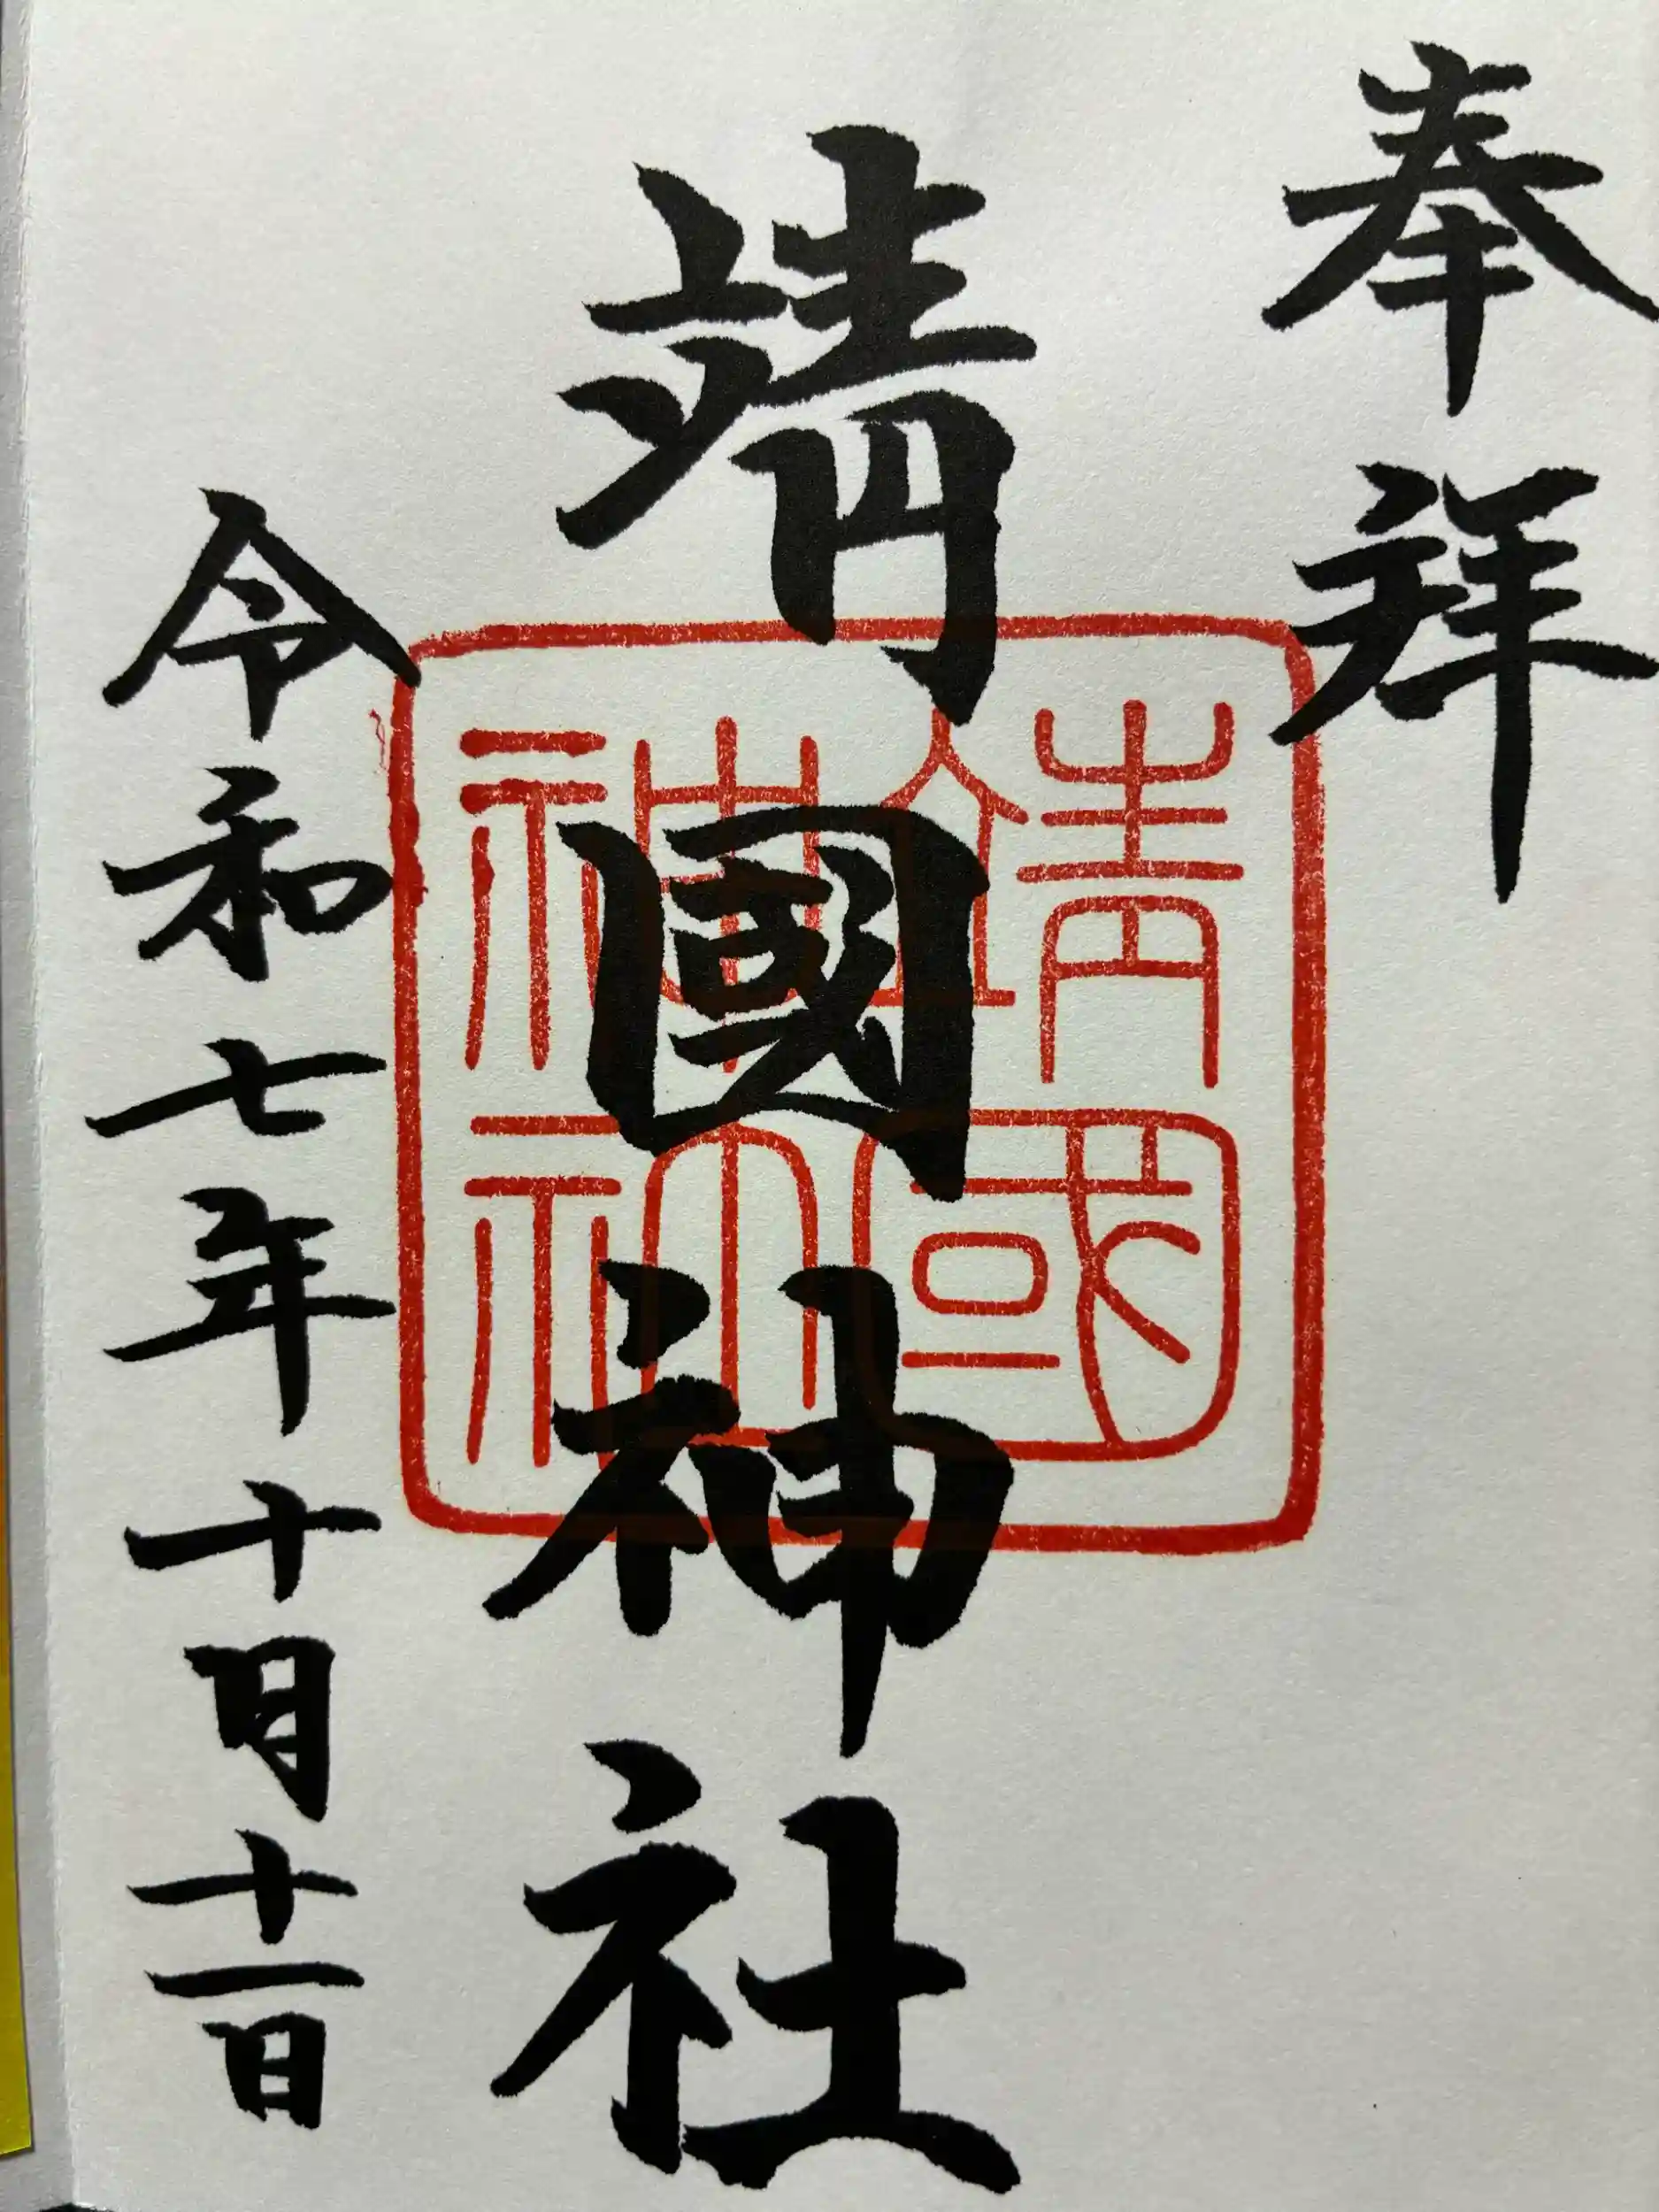 奉拝
靖國神社
靖國
神社
令和七年十月十一日